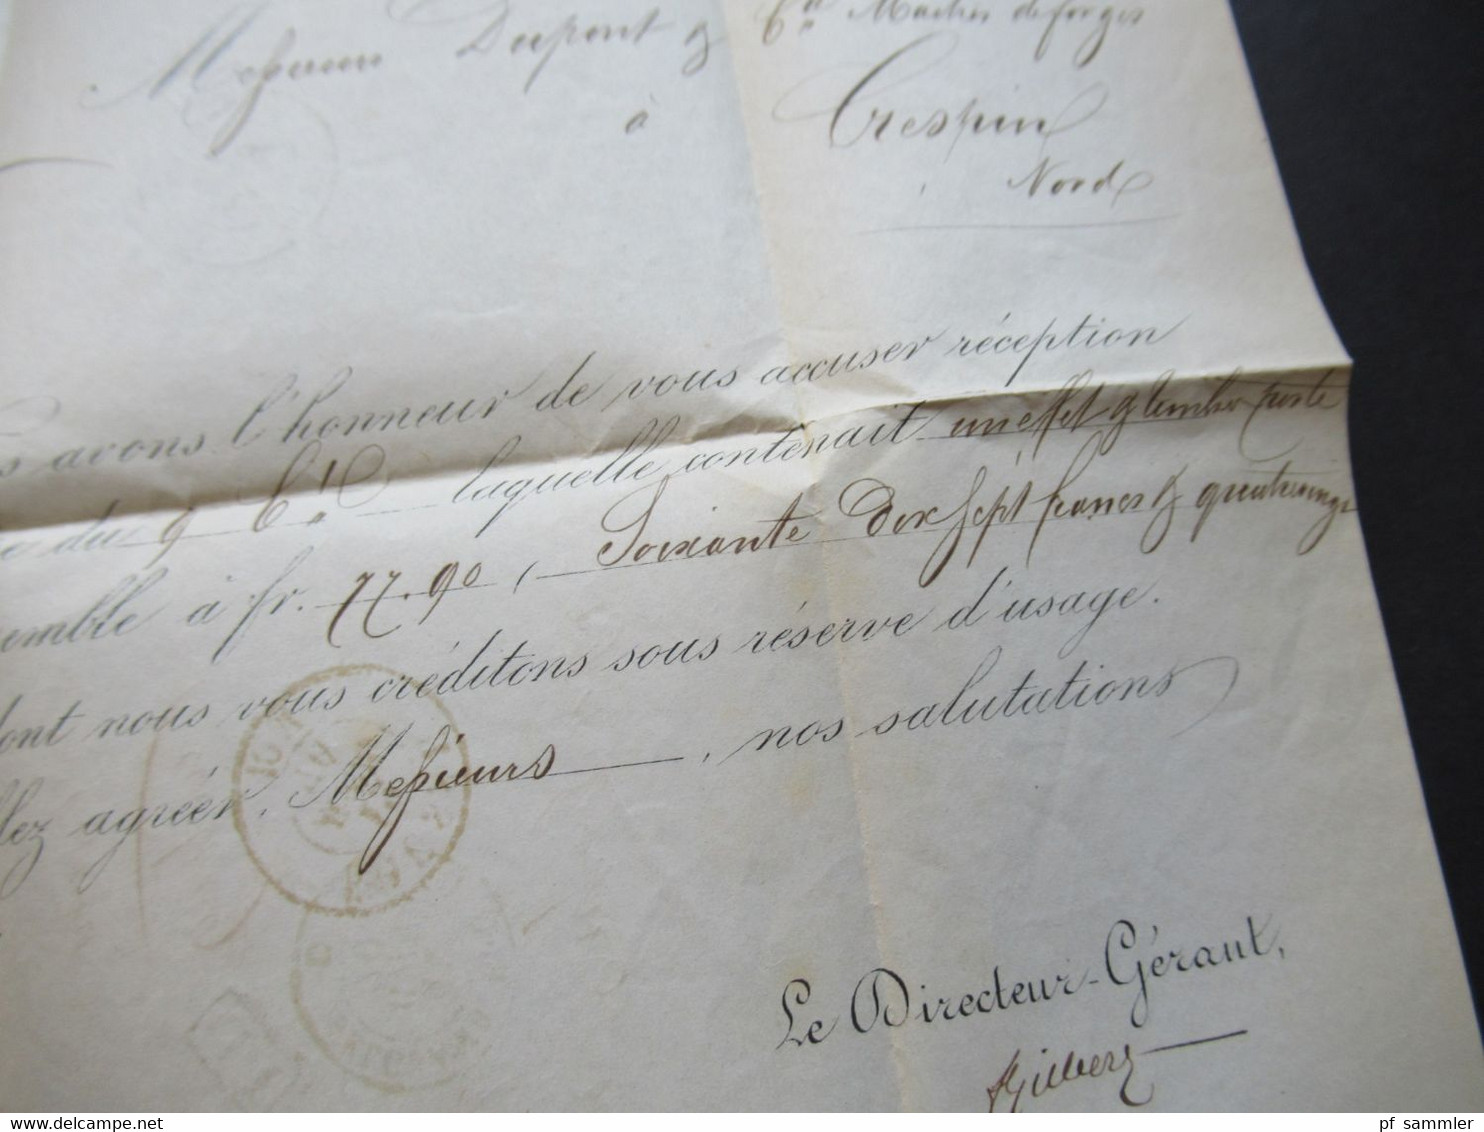 Messieurs Dupont & Cie Maîtres de forges
à Crespin
Nord
s avons l'honneur de vous accuser réception
e du 9 Ct laquelle contenait un effet & timbres poste
emble à fr. 77.90, Soixante dix sept francs & quatrevingt
dont nous vous créditons sous réserve d'usage.
llez agréer, Messieurs, nos salutations
Le Directeur-Gérant,
pf sammler